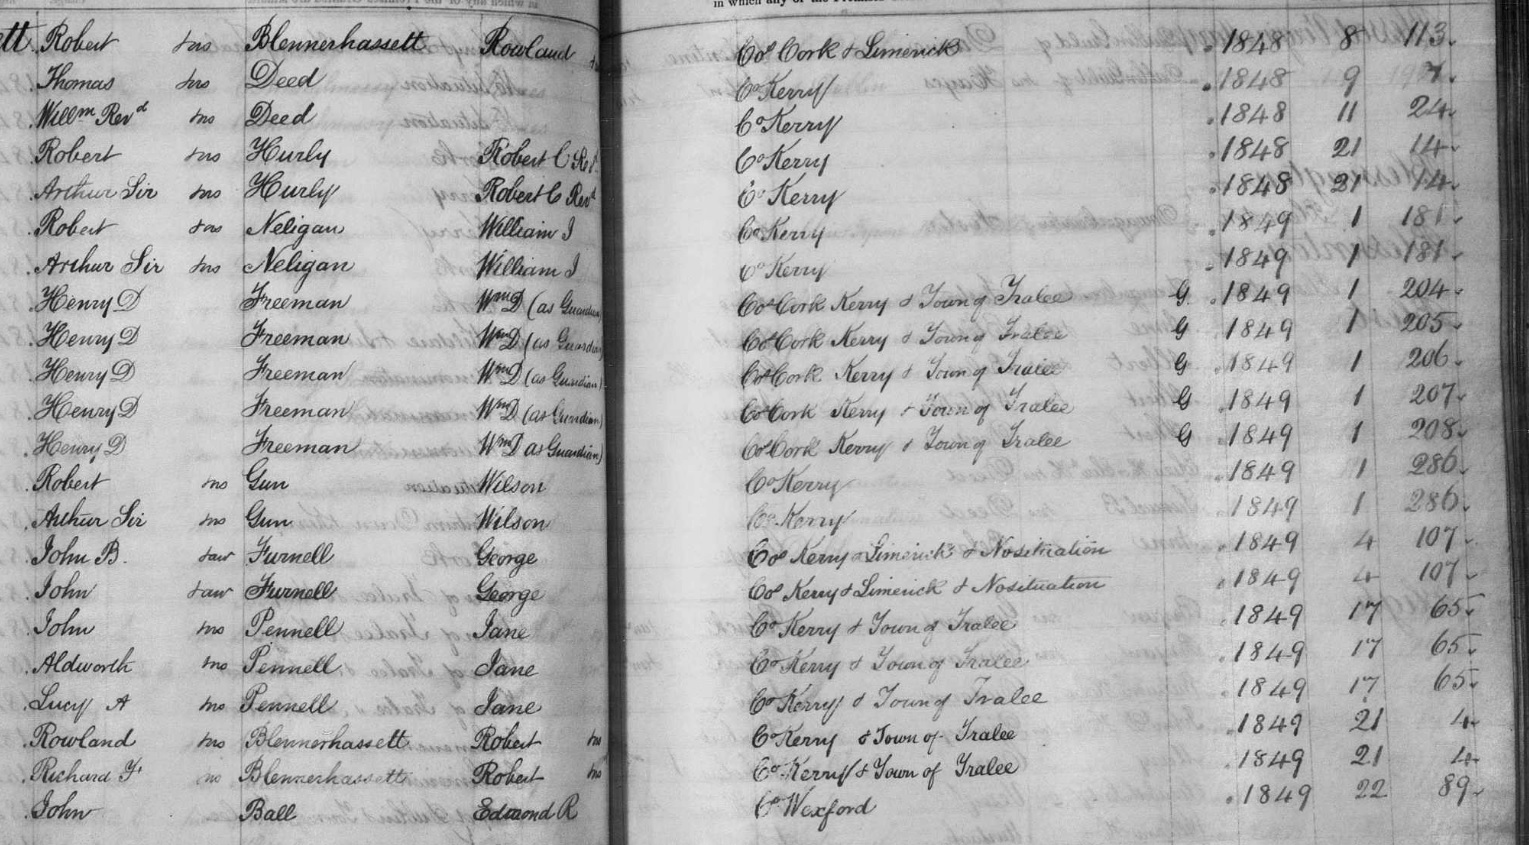 in which any of the Premises
ett Robert &ors Blennerhassett Rowland Cos Cork & Limerick 1848 8 113
Thomas &ors Deed Co Kerry 1848 9
Willm Revd &ors Deed Co Kerry 1848 11 24
Robert &ors Hurly Robert C Revd Co Kerry 1848 21 14
Arthur Sir &ors Hurly Robert C Revd Co Kerry 1848 21 14
Robert &ors Neligan William J Co Kerry 1849 1 181
Arthur Sir &ors Neligan William J Co Kerry 1849 1 181
Henry D Freeman Wm D (as Guardian Cos Cork Kerry & Town of Tralee G 1849 1 204
Henry D Freeman Wm D (as Guardian Cos Cork Kerry & Town of Tralee G 1849 1 205
Henry D Freeman Wm D (as Guardian) Cos Cork Kerry & Town of Tralee G 1849 1 206
Henry D Freeman Wm D (as Guardian) Cos Cork Kerry & Town of Tralee G 1849 1 207
Henry D Freeman Wm D as Guardian) Cos Cork Kerry & Town of Tralee G 1849 1 208
Robert &ors Gun Wilson Co Kerry 1849 1 286
Arthur Sir &ors Gun Wilson Co Kerry 1849 1 286
John B. &anr Furnell George Cos Kerry & Limerick & No situation 1849 4 107
John &anr Furnell George Cos Kerry & Limerick & No situation 1849 4 107
John &ors Pennell Jane Co Kerry & Town of Tralee 1849 17 65
Aldworth &ors Pennell Jane Co Kerry & Town of Tralee 1849 17 65
Lucy A &ors Pennell Jane Co Kerry & Town of Tralee 1849 17 65
Rowland &ors Blennerhassett Robert &ors Co Kerry & Town of Tralee 1849 21 4
Richard F &ors Blennerhassett Robert &ors Co Kerry & Town of Tralee 1849 21 4
John Ball Edmond R Co Wexford 1849 22 89